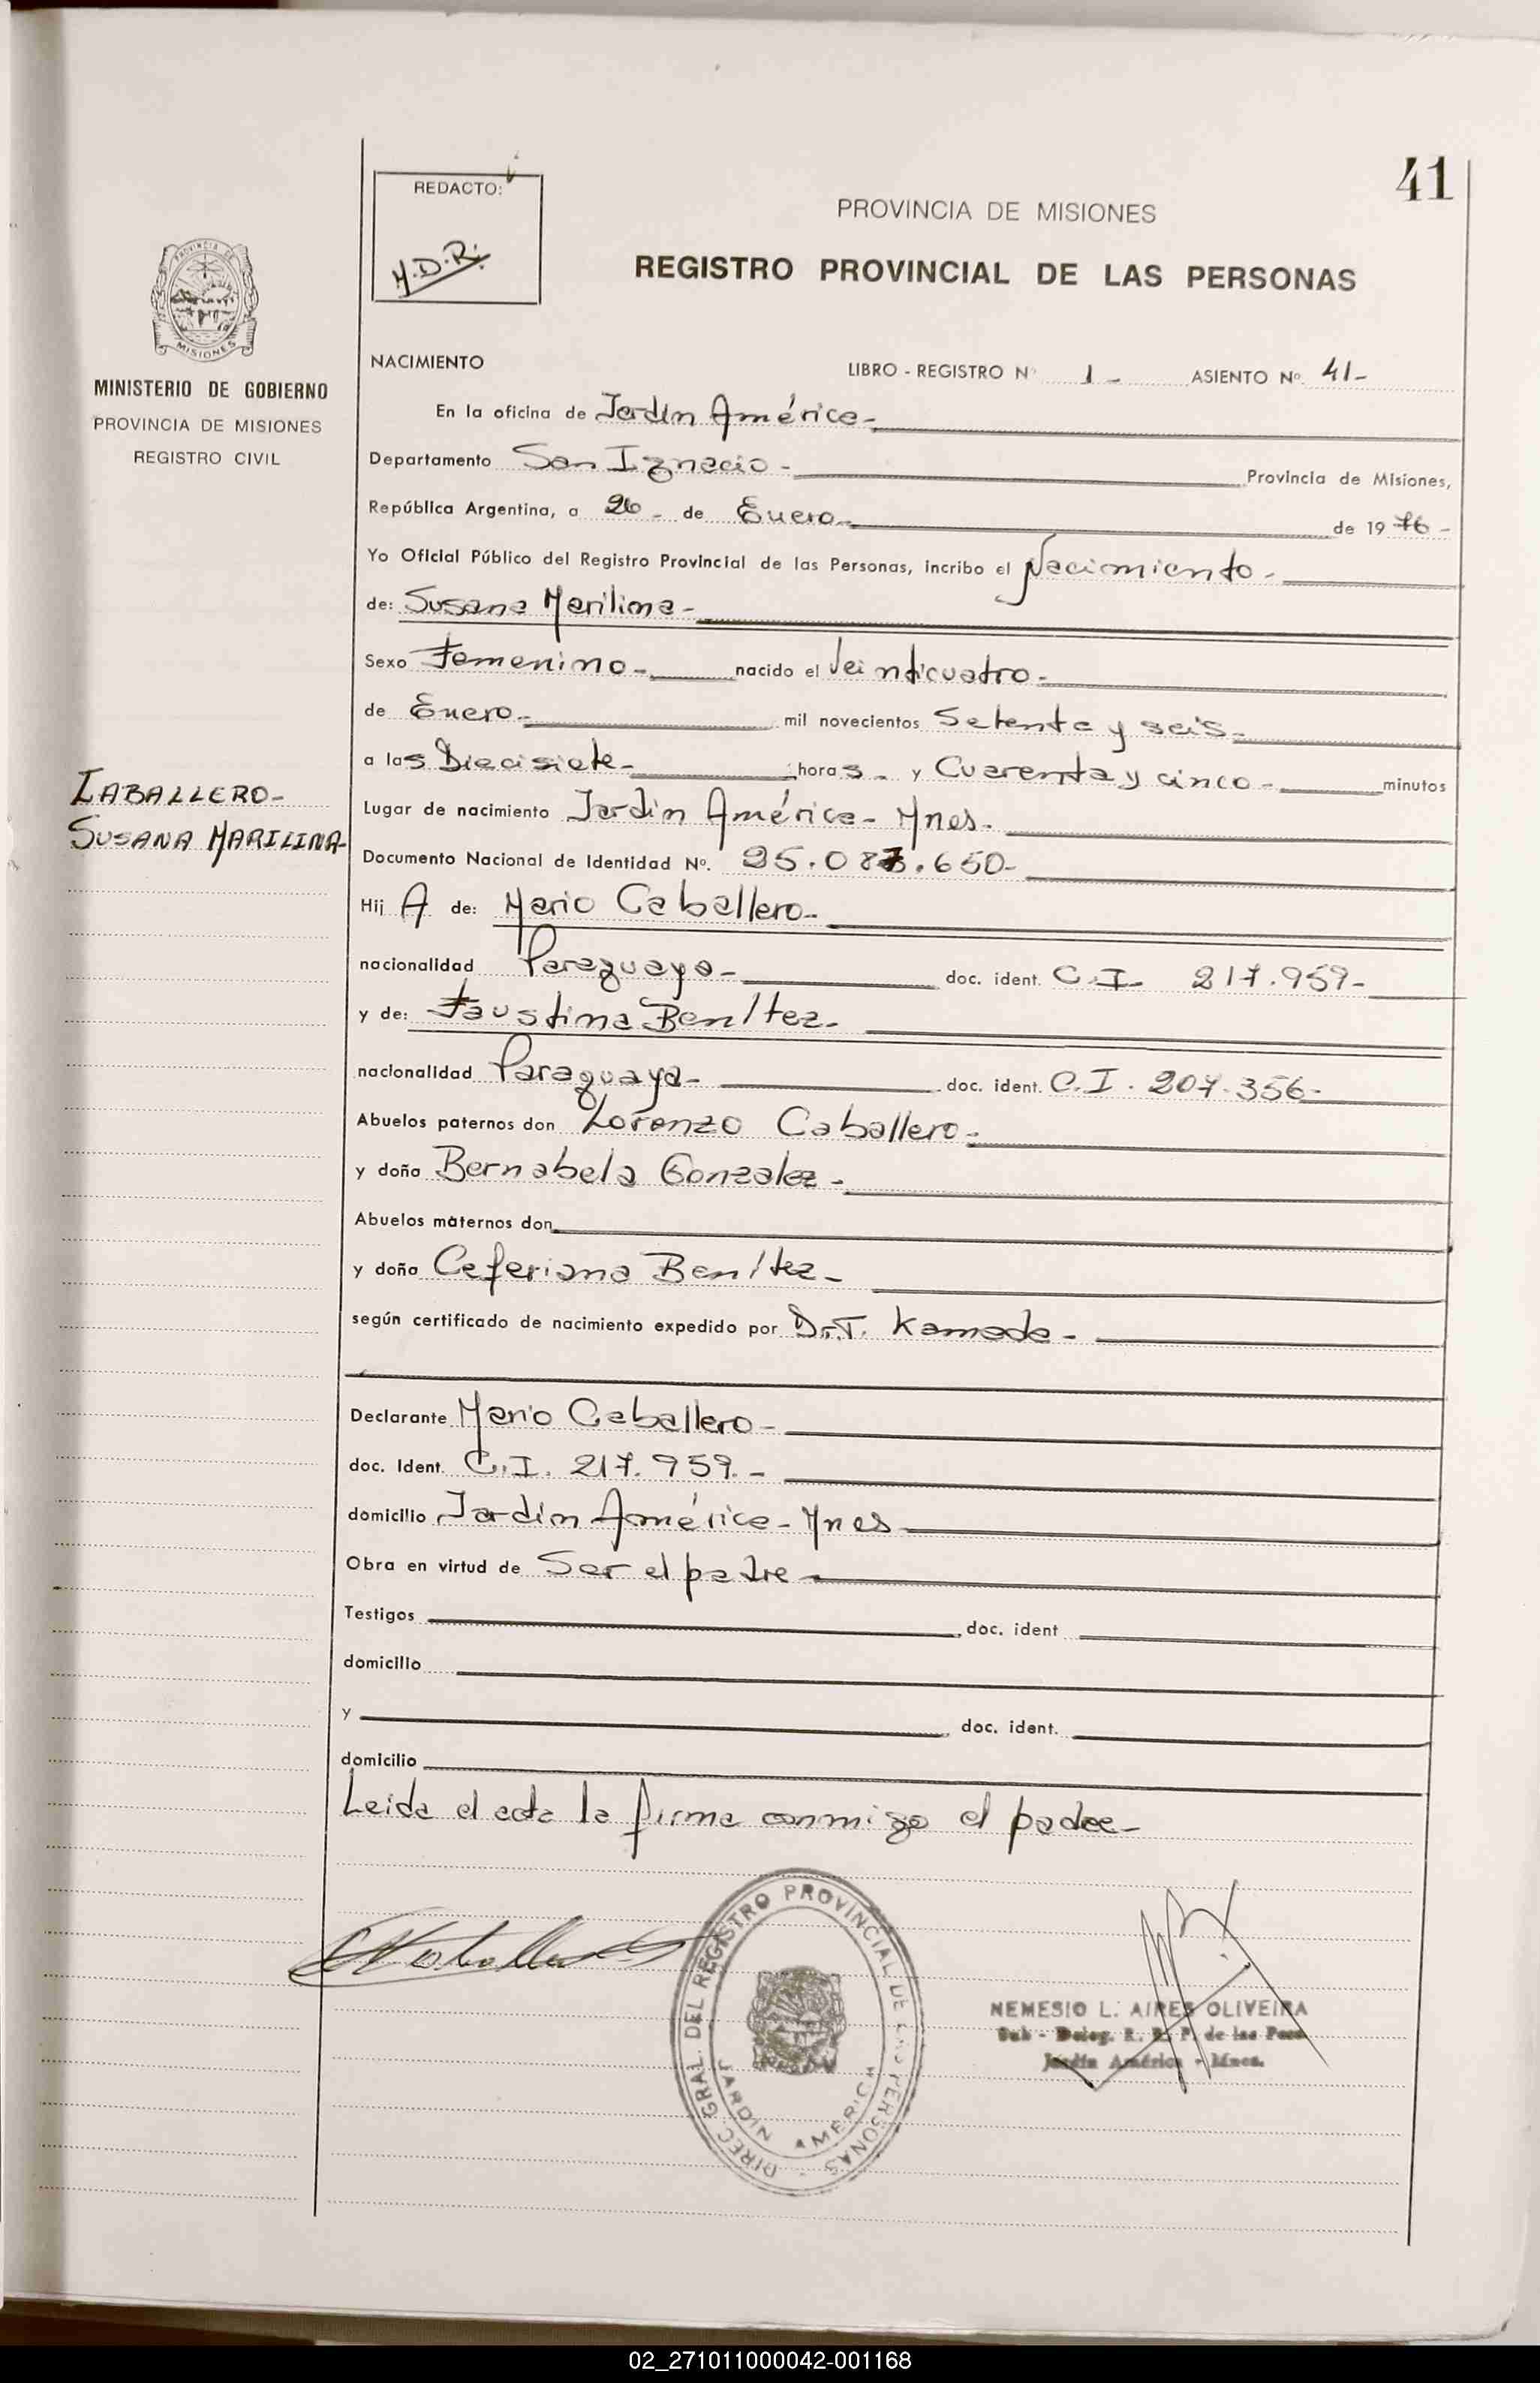 41
REDACTO:
M.D.R.
PROVINCIA DE MISIONES
REGISTRO PROVINCIAL DE LAS PERSONAS
PROVINCIA DE
MISIONES
MINISTERIO DE GOBIERNO
PROVINCIA DE MISIONES
REGISTRO CIVIL
NACIMIENTO LIBRO - REGISTRO Nº 1- ASIENTO Nº 41-
En la oficina de Jardín América-
Departamento San Ignacio- Provincia de Misiones,
República Argentina, a 26- de Enero- de 1976-
Yo Oficial Público del Registro Provincial de las Personas, incribo el Nacimiento-
de: Susana Marilina-
Sexo Femenino- nacido el Veinticuatro-
de Enero- mil novecientos Setenta y seis-
a las Diecisiete- horas- y Cuarenta y cinco- minutos
CABALLERO-
SUSANA MARILINA-
Lugar de nacimiento Jardín América- Mnes-
Documento Nacional de Identidad Nº. 25.087.650-
Hij A de: Mario Caballero-
nacionalidad Paraguayo- doc. ident. C.I- 217.959-
y de: Faustina Benítez-
nacionalidad Paraguaya- doc. ident. C.I. 207.356-
Abuelos paternos don Lorenzo Caballero-
y doña Bernabela Gonzalez-
Abuelos maternos don
y doña Ceferiana Benítez-
según certificado de nacimiento expedido por Dr.T. Kamada-
Declarante Mario Caballero-
doc. Ident. C.I. 217.959.-
domicilio Jardín América- Mnes-
Obra en virtud de Ser el padre-
Testigos doc. ident
domicilio
y doc. ident.
domicilio
Leida el acta la firma conmigo el padre-
DIREC. GRAL. DEL REGISTRO PROVINCIAL DE LAS PERSONAS -
JARDIN AMERICA
NEMESIO L. AIRES OLIVEIRA
Sub - Deleg. R. P. de las Pers.
Jardín América - Mnes.
02_271011000042-001168